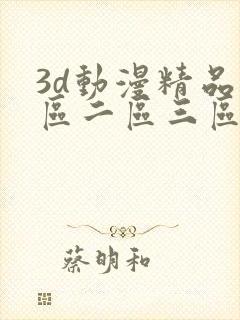 3d動漫精品
區二區三區
蔡明和